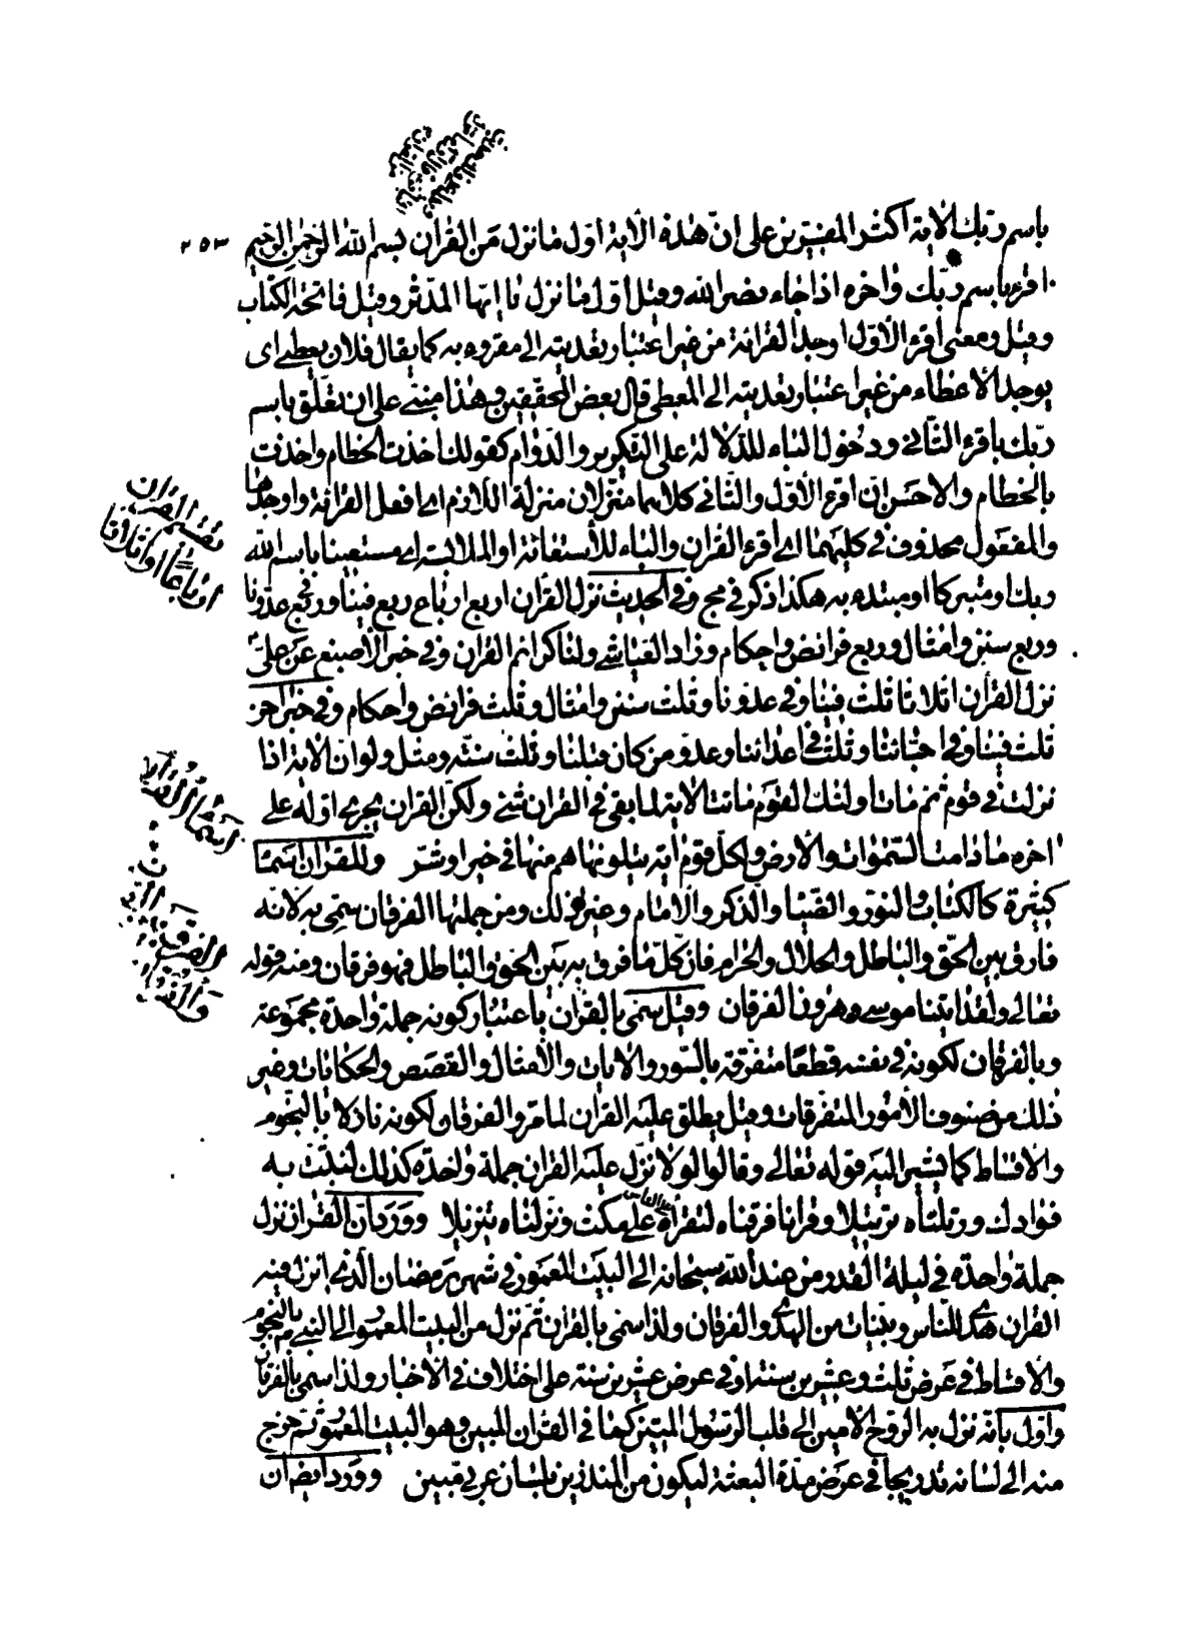 باسم ربك الاية اكثر المفسرين على انّ هذه الاية اول ما نزل من القران بسم الله الرحمن الرحيم
٢٥٣
اقرء باسم ربّك واخره اذا جاء نصر الله وقيل اول ما نزل يا ايها المدّثر وقيل فاتحة الكتاب
وقيل ومعنى اقرء الاوّل اوجد القرائة من غير اعتبار تعديته الى مقروء به كما يقال فلان يعطى اى
يوجد الاعطاء من غير اعتبار تعديته الى المعطى قال بعض المحققين وهذا مبنىّ على ان تعلّق باسم
ربّك باقرء الثّانى ودخول الباء للدّلالة على التكرير والدّوام كقولك اخذت الخطام واخذت
بالخطام والاحسن انّ اقرء الاوّل والثّانى كلاهما منزلان منزلة اللازم اى افعل القرائة واوجدها
والمفعول محذوف فى كليهما اى اقرء القران والباء للاستعانة او الملابسة اى مستعينا باسم الله
ربك او متبركا او مبتدء به هكذا ذكر فى مج وفى الحديث نزل القران اربع ارباع ربع فينا وربع فى عدوّنا
وربع سنن وامثال وربع فرائض واحكام وزاد العياشى ولنا كرائم القران وفى خبر الاصبغ عن علىّ
نزل القران اثلاثا ثلث فينا وفى عدونا وثلث سنن وامثال وثلث فرائض واحكام وفى خبر اخر
ثلث فينا وفى احبّائنا وثلث فى اعدائنا وعدوّ من كان قبلنا وثلث سنّة ومثل ولو ان الاية اذا
نزلت فى قوم ثم مات اولئك القوم ماتت الاية لما بقى فى القران شىء ولكن القران يجرى اوّله على
اخره ما دامت السّموات والارض ولكل قوم اية يتلونها هم منها فى خير او شر وللقران اسماء
كثيرة كالكتاب والنور والضياء والذكر والامام وغير ذلك ومن جملتها الفرقان سمّى به لانّه
فارق بين الحقّ والباطل والحلال والحرام فانّ كلّ ما فرق به بين الحق والباطل فهو فرقان ومنه قوله
تعالى ولقد اتينا موسى وهرون الفرقان وقيل سمى بالقران باعتبار كونه جملة واحدة مجموعة
وبالفرقان لكونه فى نفسه قطعًا متفرقة بالسّور والايات والامثال والقصص والحكايات وغير
ذلك من صنوف الامور المتفرقات وقيل يطلق عليه القران لما مرّ والفرقان لكونه نازلا بالنجوم
والاقساط كما يشير اليه قوله تعالى وقالوا لولا نزّل عليه القران جملة واحدة كذلك لنثبّت به
فؤادك ورتلناه ترتيلا وقرانا فرقناه لتقرأه على الناس على مكث ونزلناه تنزيلا وورد ان القران نزل
جملة واحدة فى ليلة القدر من عند الله سبحانه الى البيت المعمور فى شهر رمضان الذى انزل فيه
القران هدى للنّاس وبيّنات من الهدى والفرقان ولذا سمى بالقران ثمّ نزل من البيت المعمور الى النبى بالنجوم
والاقساط فى عرض ثلث وعشرين سنة او فى عرض عشرين سنة على اختلاف فى الاخبار ولذا سمى بالفرقان
واقول بانّه نزل به الروح الامين الى قلب الرّسول المتين كما فى القران المبين وهو البيت المعمور ثم خرج
منه الى لسانه تدريجا فى عرض مدّة البعثة ليكون من المنذرين بلسان عربى مبين وورد ايضا ان
تقسيم القران
ارباعًا او اثلاثا
اسماء القران
الفرق بين
والقران